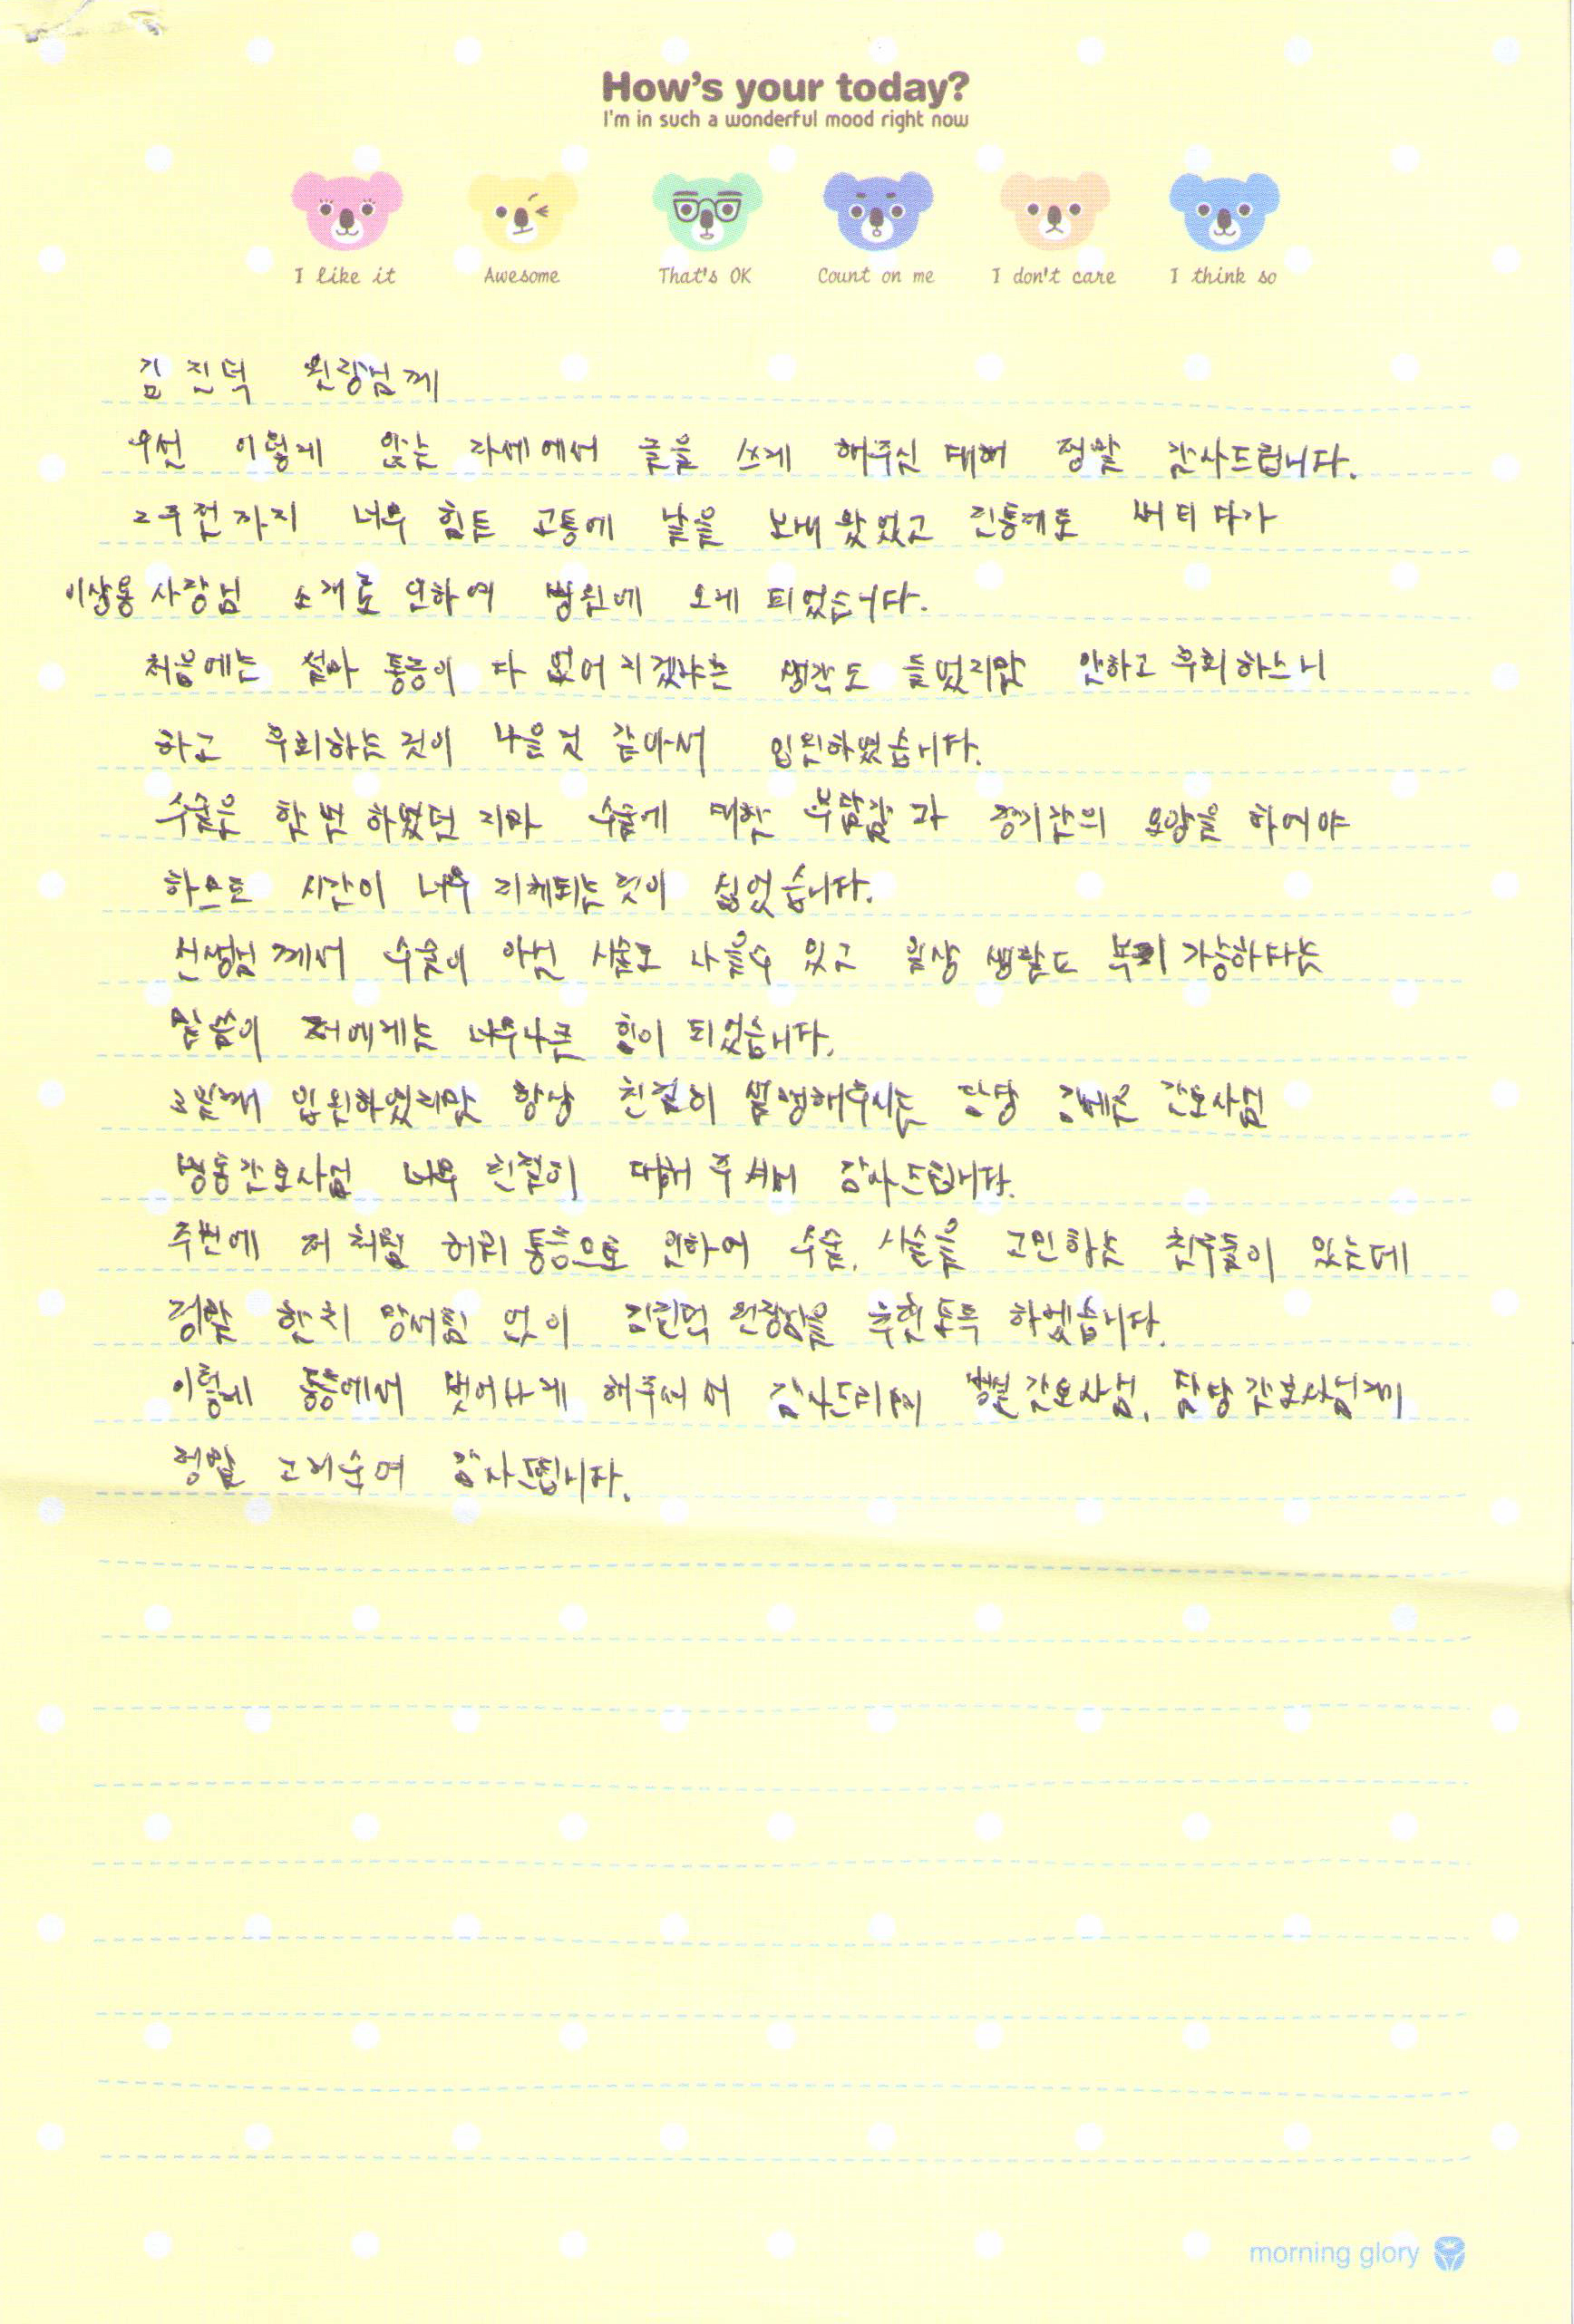 How's your today?
I'm in such a wonderful mood right now
I like it Awesome That's OK Count on me I don't care I think so
김진덕 원장님께
우선 이렇게 앉는 자세에서 글을 쓰게 해주신 대해 정말 감사드립니다.
2주전까지 너무 힘든 고통에 날을 보내 왔었고 진통제로 버티다가
이상용 사장님 소개로 인하여 병원에 오게 되었습니다.
처음에는 설마 통증이 다 없어지겠냐는 생각도 들었지만 안하고 후회하느니
하고 후회하는것이 나을것 같아서 입원하였습니다.
수술은 한번 하였던 지라 수술에 대한 부담감과 장기간의 요양을 하여야
하므로 시간이 너무 지체되는것이 싫었습니다.
선생님께서 수술이 아닌 시술로 나을수 있고 일상 생활도 복귀 가능하다는
말씀이 저에게는 너무나큰 힘이 되었습니다.
입원하였지만 항상 친절히 설명해주시는 담당 간호사님
병동간호사님 너무 친절히 대해 주셔서 감사드립니다.
주변에 저처럼 허리통증으로 인하여 수술, 시술을 고민하는 친구들이 있는데
정말 한치 망설임 없이 김진덕 원장님을 추천토록 하겠습니다.
이렇게 통증에서 벗어나게 해주셔서 감사드리며 병실간호사님, 담당간호사님께
정말 고개숙여 감사드립니다.
morning glory